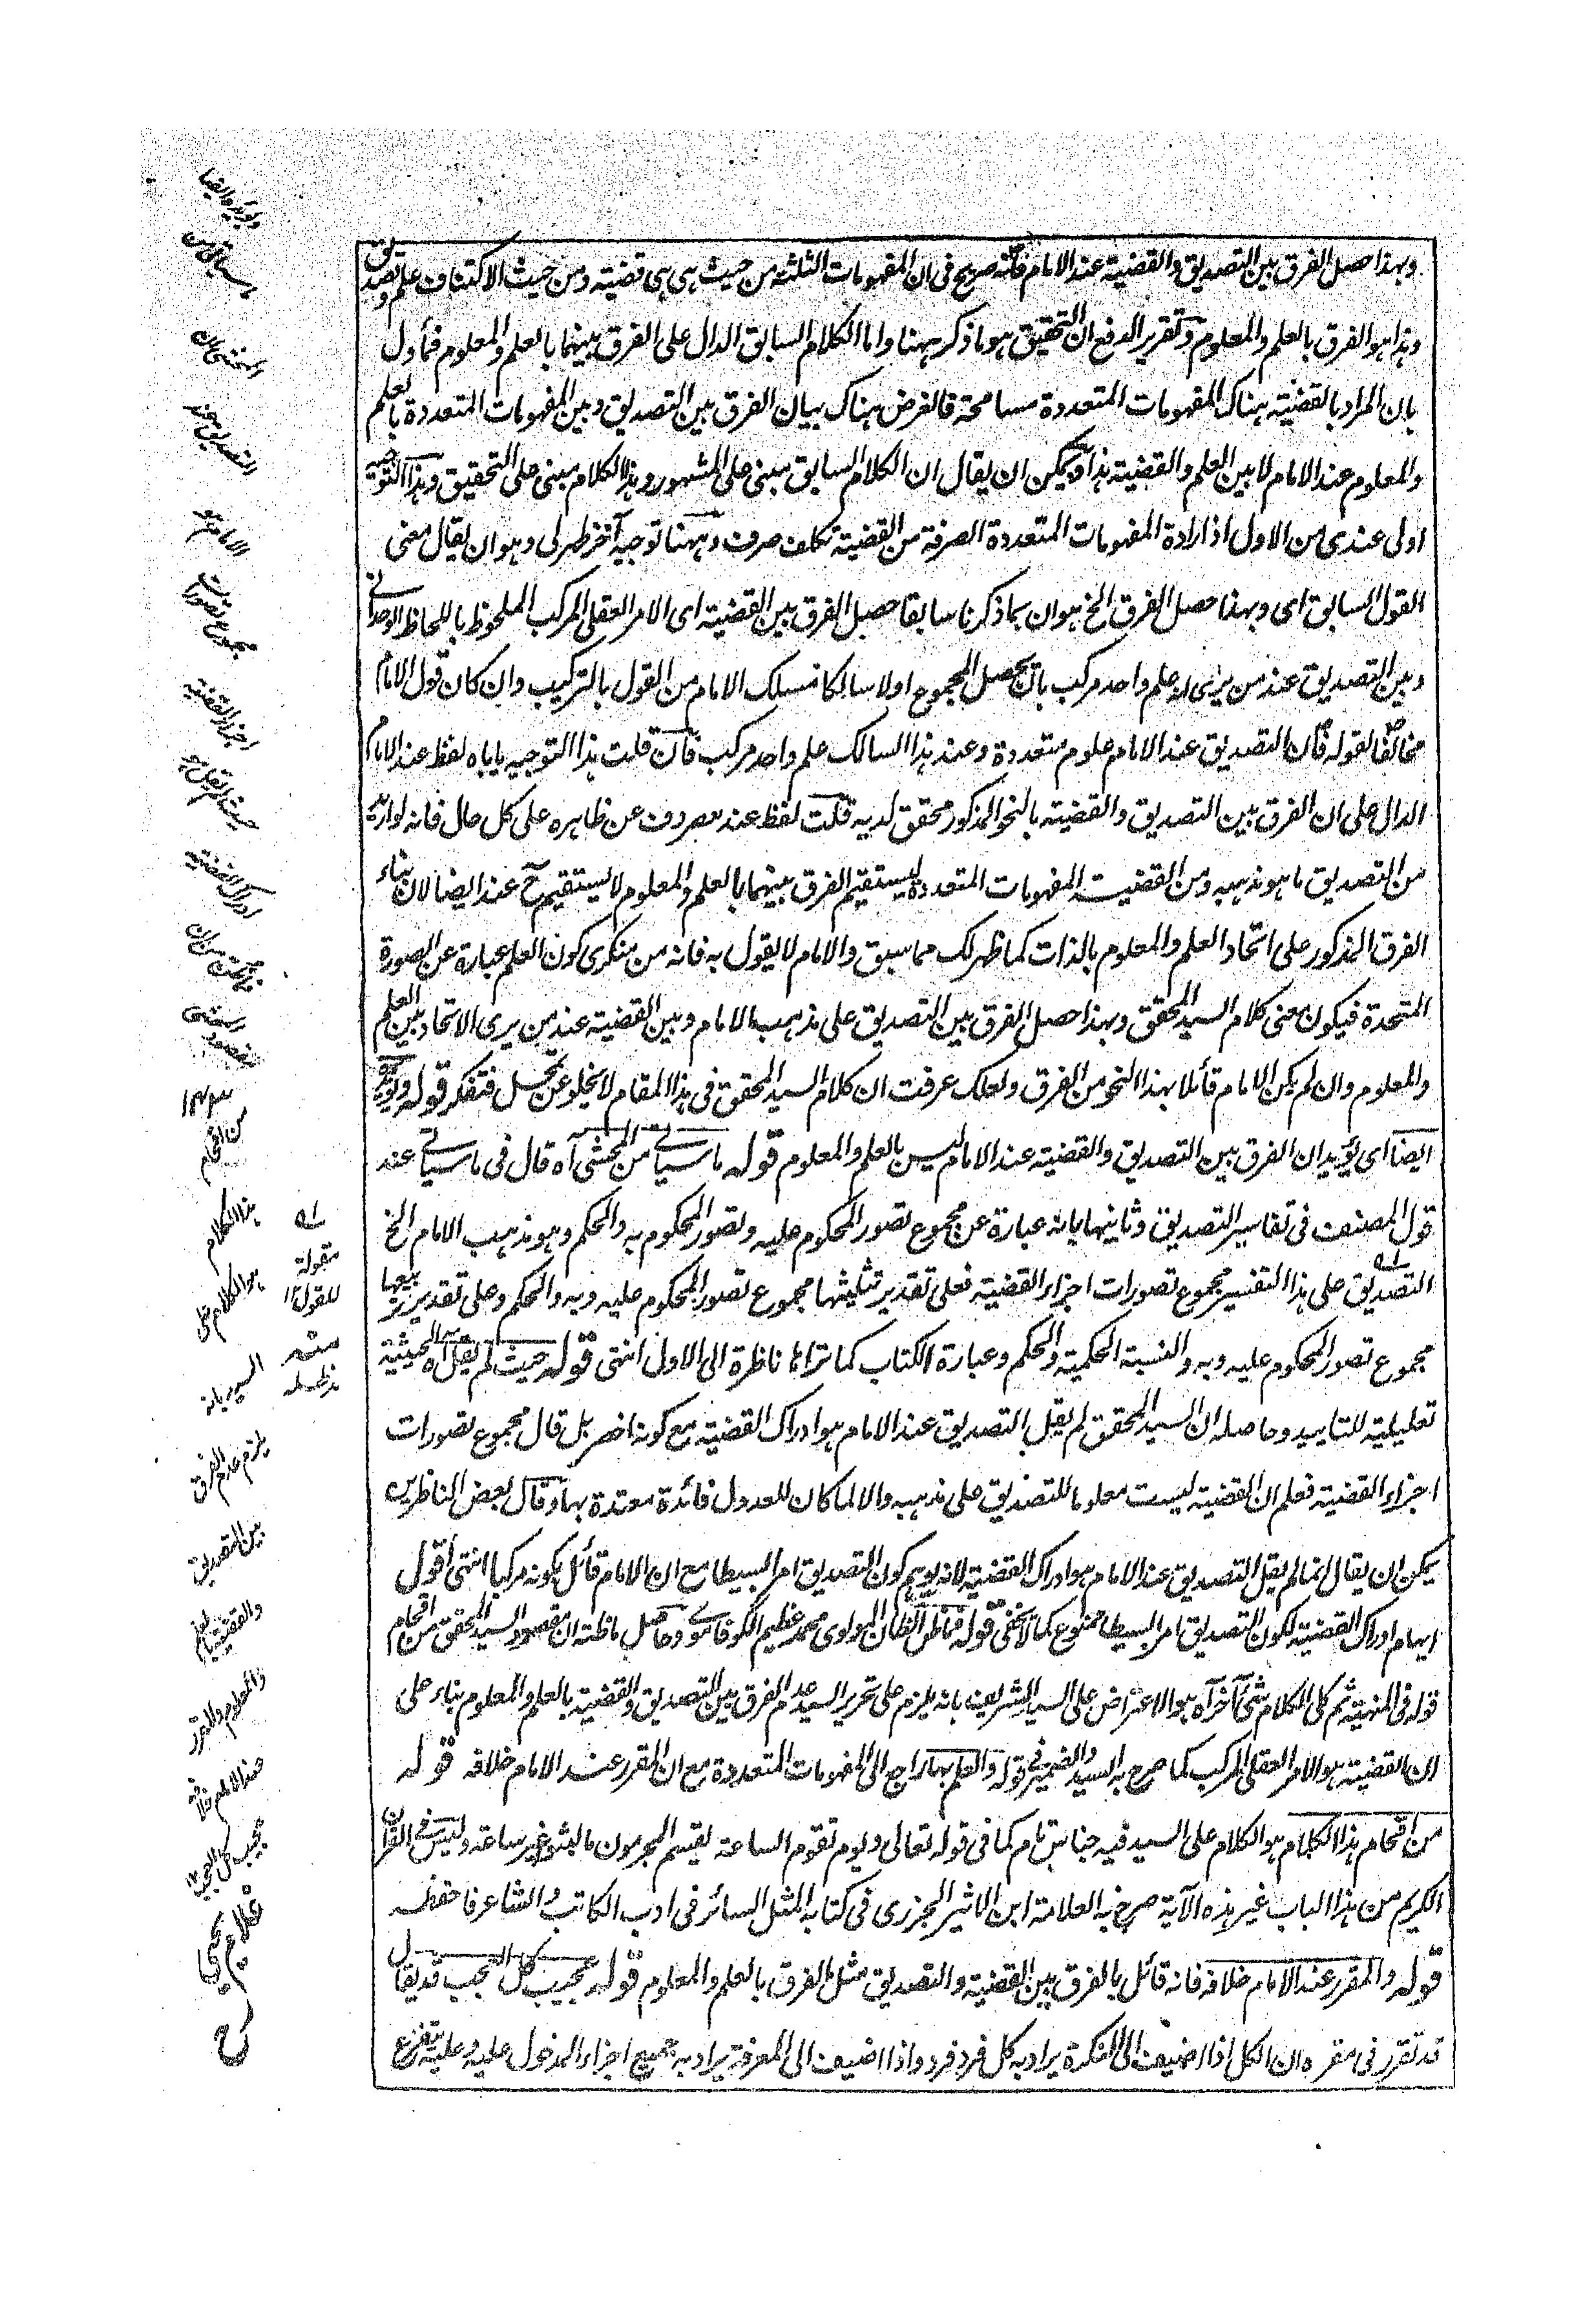 وبهذا حصل الفرق بين التصديق والقضية عند الامام فانه صريح فى ان المفهومات الثلثة من حيث هى هى قضية ومن حيث الاكتناف علم وتصديق
وهذا هو الفرق بالعلم والمعلوم وتقرير الدفع ان التحقيق هو ما ذكر ههنا واما الكلام السابق الدال على الفرق بينهما بالعلم والمعلوم فمأول
بان المراد بالقضية هناك المفهومات المتعددة مسامحة فالغرض هناك بيان الفرق بين التصديق وبين المفهومات المتعددة بالعلم
والمعلوم عند الامام لا بين العلم والقضية هذا ويمكن ان يقال ان الكلام السابق مبنى على المشهور وهذا الكلام مبنى على التحقيق وهذا التوجيه
اولى عندى من الاول اذ ارادة المفهومات المتعددة الصرفة من القضية تكلف صرف وههنا توجيه آخر ظهر لى وهو ان يقال معنى
القول السابق اى وبهذا حصل الفرق الخ هو ان بما ذكرنا سابقا حصل الفرق بين القضية اى الامر العقلى المركب الملحوظ باللحاظ الوحدانى
وبين التصديق عند من يرى انه علم واحد مركب بان يحصل المجموع اولا سالكا مسلك الامام من القول بالتركيب وان كان قول الامام
مخالفا لقوله فان التصديق عند الامام علوم متعددة وعند هذا السالك علم واحد مركب فان قلت هذا التوجيه ياباه لفظ عند الامام
الدال على ان الفرق بين التصديق والقضية بالنحو المذكور محقق لديه قلت لفظ عند مصروف عن ظاهره على كل حال فانه لو اريد
من التصديق ما هو مذهبه ومن القضية المفهومات المتعددة ليستقيم الفرق بينهما بالعلم والمعلوم لا يستقيم ح عند ايضا لان بناء
الفرق المذكور على اتحاد العلم والمعلوم بالذات كما ظهر لك مما سبق والامام لا يقول به فانه من منكرى كون العلم عبارة عن الصورة
المتحدة فيكون معنى كلام السيد المحقق وبهذا حصل الفرق بين التصديق على مذهب الامام وبين القضية عند من يرى الاتحاد بين العلم
والمعلوم وان لم يكن الامام قائلا بهذا النحو من الفرق ولعلك عرفت ان كلام السيد المحقق فى هذا المقام لا يخلو عن تمحل فتفكر قوله ويؤيده
ايضا اى يؤيد ان الفرق بين التصديق والقضية عند الامام ليس بالعلم والمعلوم قوله ما سياتى من المحشى آه قال فى ما سياتى عند
قول المصنف فى تفاسير التصديق وثانيها بانه عبارة عن مجموع تصور المحكوم عليه وتصور المحكوم به والحكم وهو مذهب الامام الخ
التصديق على هذا التفسير مجموع تصورات اجزاء القضية فعلى تقدير تثليثها مجموع تصور المحكوم عليه وبه والحكم وعلى تقدير تربيعها
مجموع تصور المحكوم عليه وبه والنسبة الحكمية والحكم وعبارة الكتاب كما تراها ناظرة الى الاول انتهى قوله حيث لم يقل آه الحيثية
تعليلية للتاييد وحاصله ان السيد المحقق لم يقل التصديق عند الامام هو ادراك القضية مع كونه اخصر بل قال مجموع تصورات
اجزاء القضية فعلم ان القضية ليست معلوما للتصديق على مذهبه والا لما كان للعدول فائدة معتدة بها وقال بعض الناظرين
يمكن ان يقال انما لم يقل التصديق عند الامام هو ادراك القضية لانه يوهم كون التصديق امرا بسيطا مع ان الامام قائل بكونه مركبا انتهى اقول
ايهام ادراك القضية لكون التصديق امرا بسيطا ممنوع كما لا يخفى قوله فما ظن الظان المولوى محمد عظيم الكوفاموى وحاصل ما ظنه ان مقصود السيد المحقق من اقحام
قوله فى المنهية ثم كلى الكلام شئ آخر آه هو الاعتراض على السيد الشريف بانه يلزم على تحرير السيد عدم الفرق بين التصديق والقضية بالعلم والمعلوم بناء على
ان القضية هو الامر العقلى المركب كما صرح به السيد والضمير فى قوله والعلم بها راجع الى المفهومات المتعددة مع ان المقرر عند الامام خلافه قوله
من اقحام هذا الكلام هو الكلام على السيد فيه جناس تام كما فى قوله تعالى ويوم تقوم الساعة يقسم المجرمون ما لبثوا غير ساعة وليس فى القران
الكريم من هذا الباب غير هذه الآية صرح به العلامة ابن الاثير الجزرى فى كتابه المثل السائر فى ادب الكاتب والشاعر فاحفظه
قوله والمقرر عند الامام خلافه فانه قائل بالفرق بين القضية والتصديق مثل الفرق بالعلم والمعلوم قوله عجيب كل العجب قد يقال
قد تقرر فى مقره ان الكل اذا اضيف الى النكرة يراد به كل فرد فرد واذا اضيف الى المعرفة يراد به جميع اجزاء المدخول عليه وعليه يتفرع
ويؤيده ايضا
ما سياتى من
المحشى ان
التصديق عند
الامام هو
مجموع تصورات
اجزاء القضية
حيث لم يقل هو
ادراك القضية
من اقحام
هذا الكلام
هو الكلام على
السيد بانه
يلزم عدم الفرق
بين التصديق
والقضية بالعلم
والمعلوم والمقرر
عند الامام خلافه
عجيب كل العجب ١٢
غلام يحيى
مقولة
للقول ١٢
منه
مد ظله